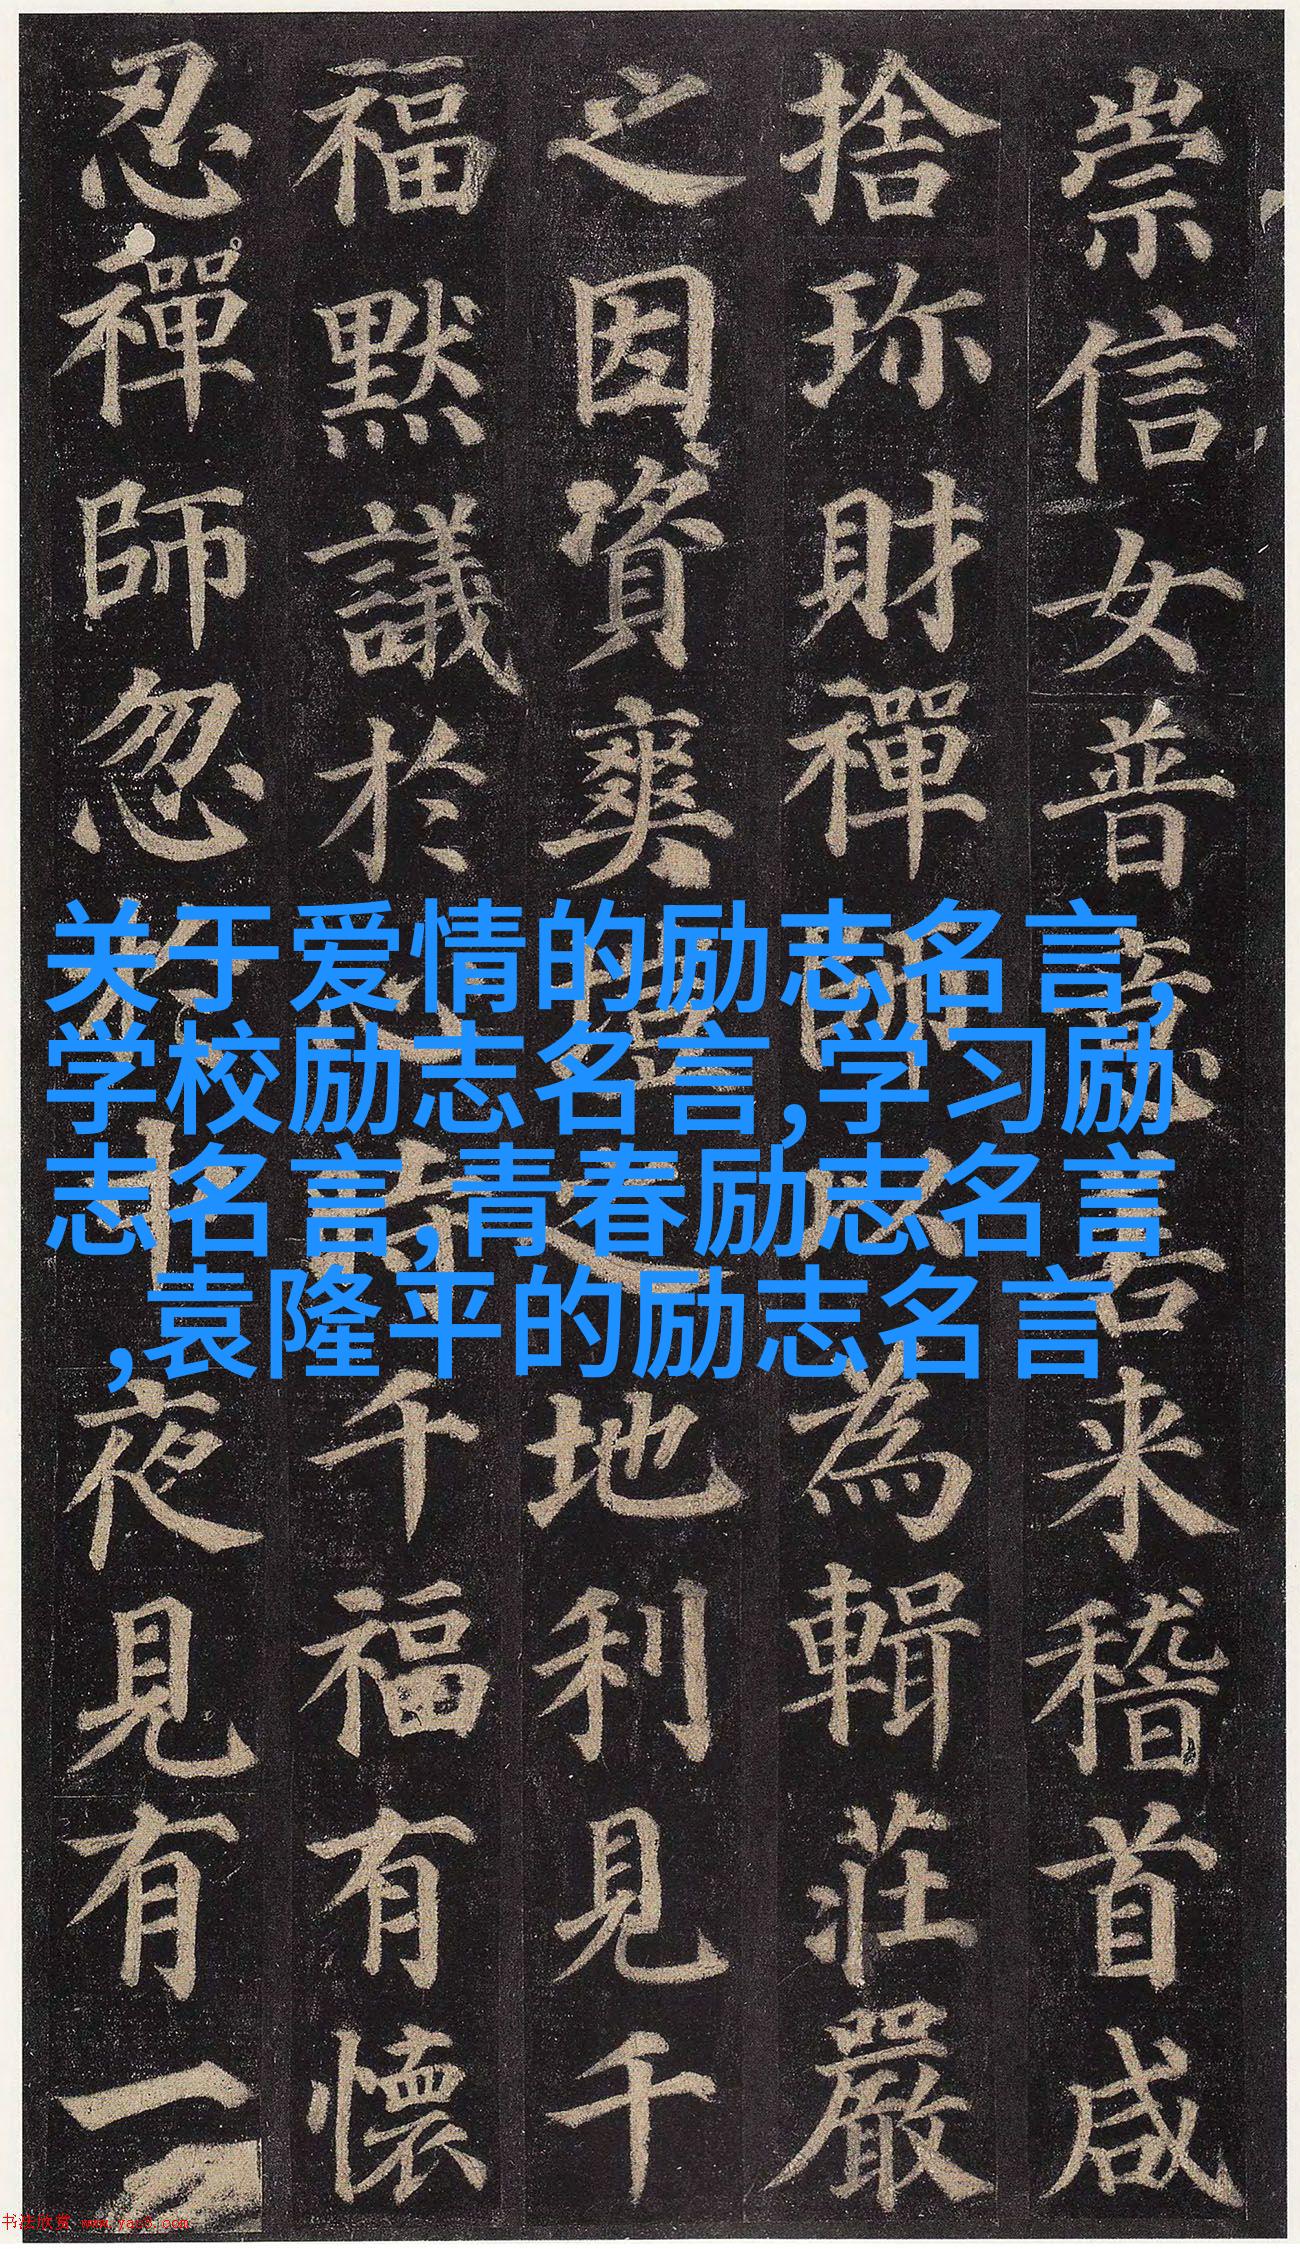 崇信女普意善来稽首咸
捨珎財禪師以為輯莊嚴
之因資爽塏之地利見千
福默議於心時千福有懷
忍禪師忽於中夜見有一
关于爱情的励志名言,
学校励志名言,学习励
志名言,青春励志名言
,袁隆平的励志名言
书法欣赏 www.yac8.com